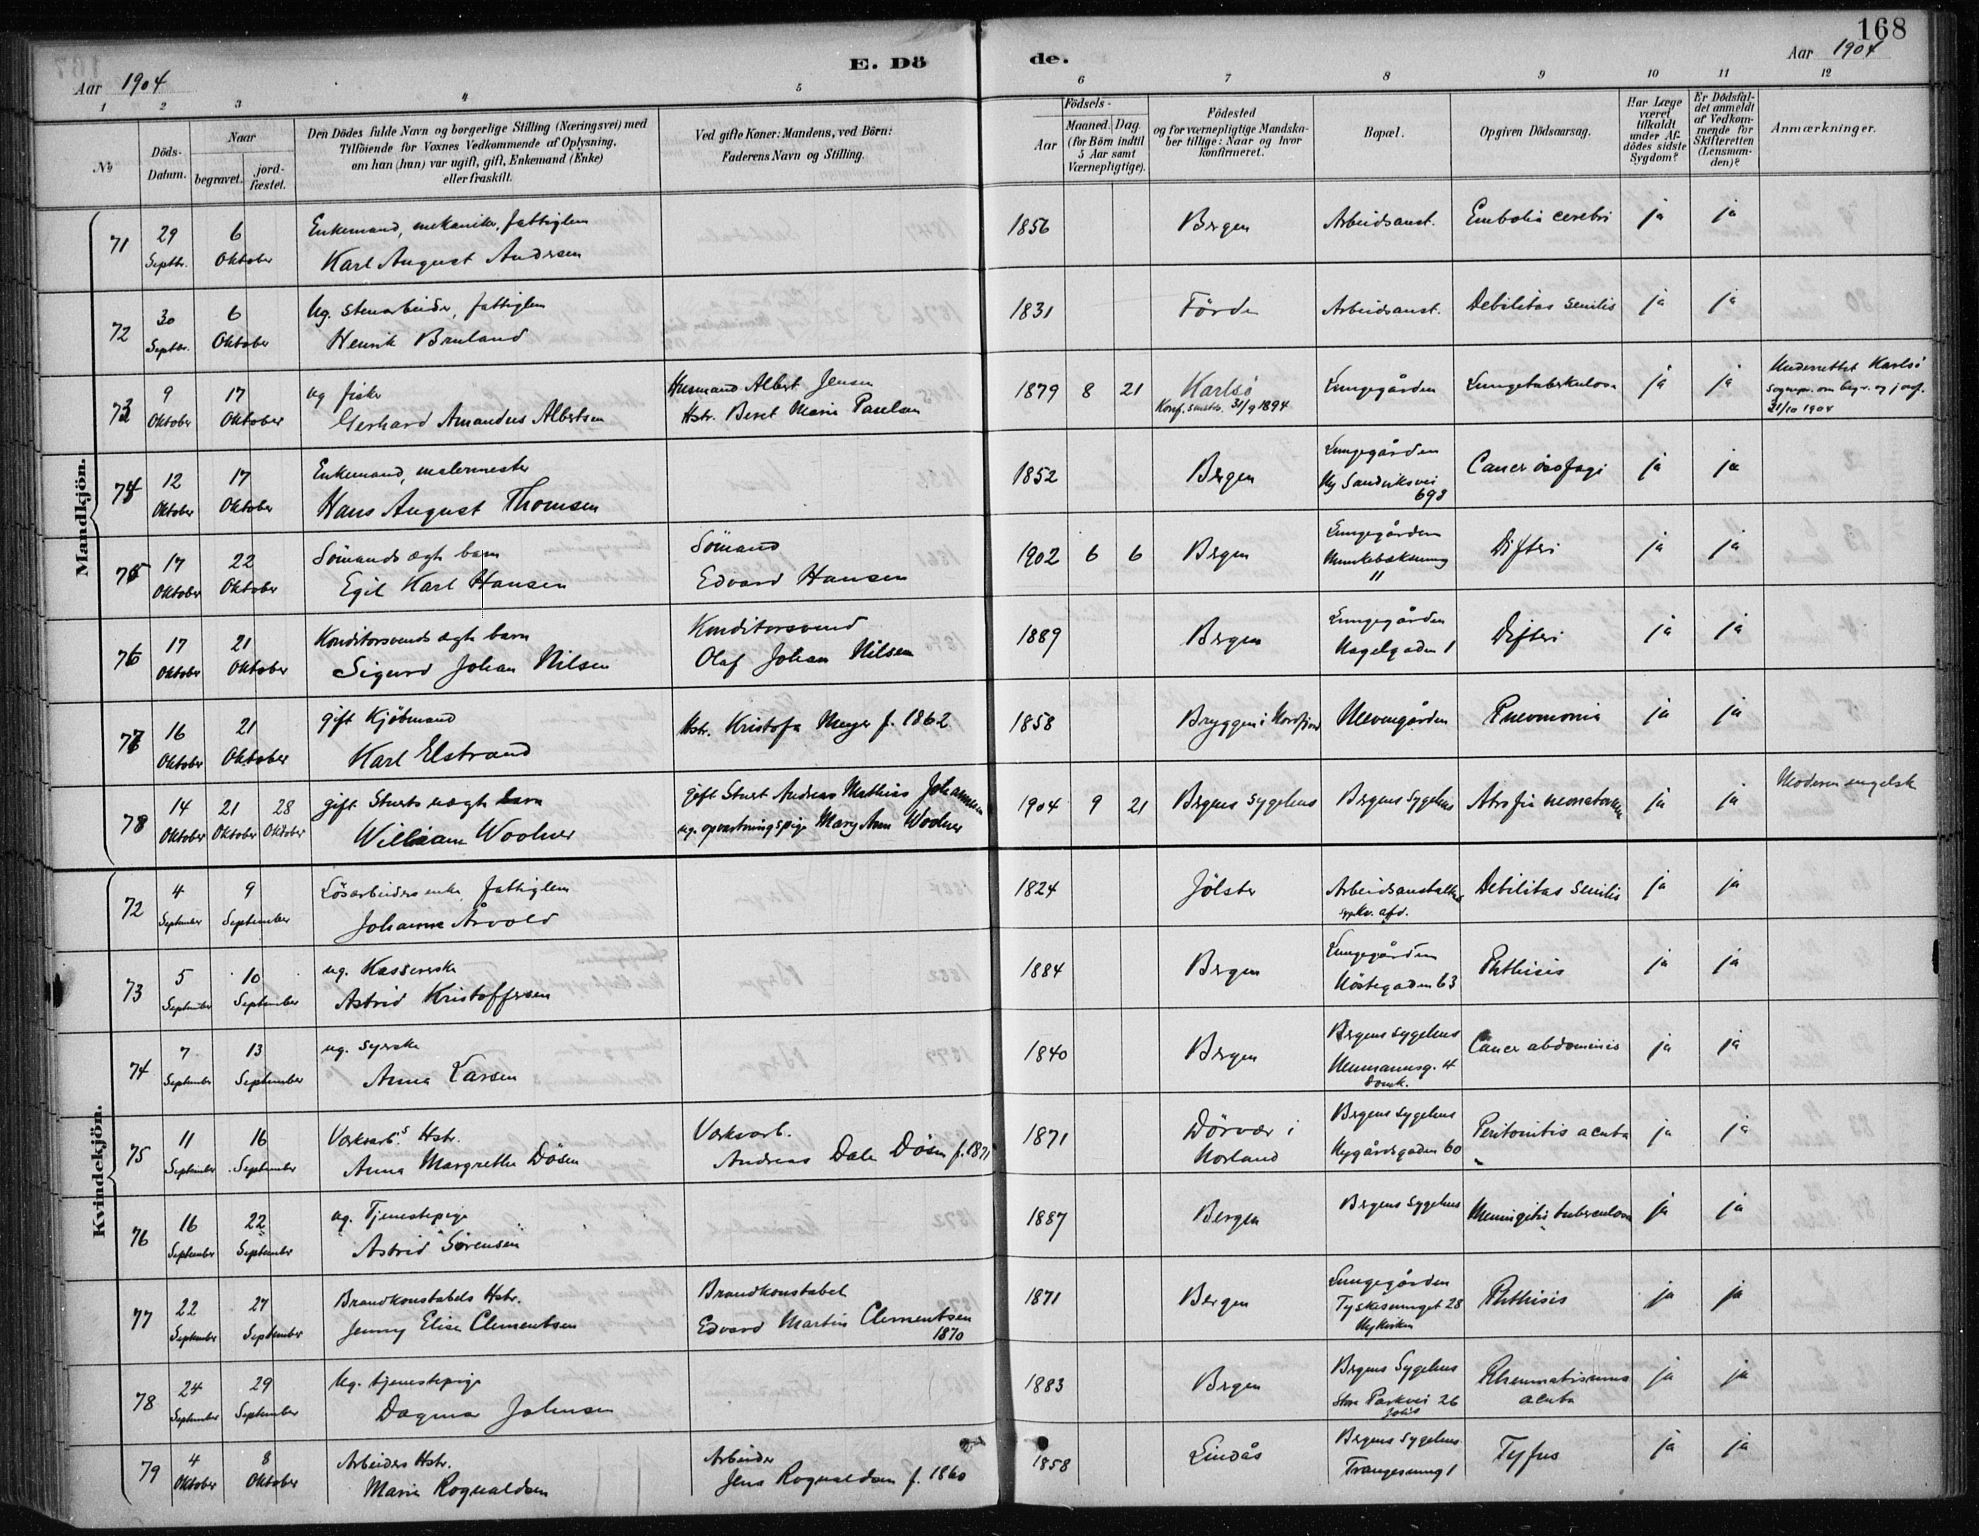 168
Aar 1904
E. Dö
de.
Aar 1904
1 2 3 4 5 6 7 8 9 10 11 12
No
Döds-Datum.
Naar
begravet.
jord-fæstet.
Den Dödes fulde Navn og borgerlige Stilling (Næringsvei) med
Tilföiende for Voxnes Vedkommende af Oplysning,
om han (hun) var ugift, gift, Enkemand (Enke)
eller fraskilt.
Ved gifte Koner: Mandens, ved Börn:
Faderens Navn og Stilling.
Födsels-
Aar
Maaned. Dag.
(for Börn indtil
5 Aar samt
Værnepligtige).
Födested
og for værnepligtige Mandska-
ber tillige: Naar og hvor
konfirmeret.
Bopæl.
Opgiven Dödsaarsag.
Har Læge
været
tilkaldt
under Af-
dödes sidste
Sygdom?
Er Dödsfal-
det anmeldt
af Vedkom-
mende for
Skifteretten
(Lensman-
den)?
Anmærkninger.
Mandkjön.
71 29 Septbr. 6 Oktober Enkemand, mekaniker, fattiglem
Karl August Andersen 1856 Bergen Arbeidsanst. Emboli cerebri ja ja
72 30 Septbr. 6 Oktober Ug. stenarbeider, fattiglem
Henrik Bruland 1831 Förde Arbeidsanst. Debilitas senilis ja ja
73 9 Oktober 17 Oktober ug fisker
Gerhard Amandus Albertsen
Husmand Albert Jensen
Hstr. Beret Marie Paulsen
1879 8 21 Karlsö
Konf. smsts. 31/9 1894
Lungegården Lungetuberkulose ja ja
Underrettet Karlsö
sognepr. om begr. og jordf.
31/10 1904
74 12 Oktober 17 Oktober Enkemand, malermester
Hans August Thomsen 1852 Bergen
Lungegården
Ny Sandviksvei
693
Cancer øsofagi ja ja
75 17 Oktober 22 Oktober Sömands ægte barn
Egil Karl Hansen
Sömand
Edvard Hansen
1902 6 6 Bergen
Lungegården
11
Difteri ja ja
76 17 Oktober 21 Oktober Konditorsvends ægte barn
Sigurd Johan Nilsen
Konditorsvend
Olaf Johan Nilsen
1889 Bergen
Lungegården
Nagelgaden 1
Difteri ja ja
77 16 Oktober 21 Oktober gift Kjöbmand
Karl Elstrand
Hstr. Kristofa Meyer f. 1862
1858 Bryggen i Nordfjord Pneumonia ja ja
78 14 Oktober 21 Oktober 28 Oktober gift Stuerts uægte barn
William Woolner
gift Stuert Andreas Mathias Johannesen
ug. opvartningspige Mary Ann Woolner
1904 9 21 Bergens sygehus Bergens sygehus Atrofia neonatorum ja ja
Moderen engelsk
Kvindekjön.
72 4 September 9 September Lösarbeiders enke, fattiglem
Johanne Årvold 1824 Jölster
Arbeidsanstaltens
sygekv. afd.
Debilitas senilis ja ja
73 5 September 10 September ug. Kassererske
Astrid Kristoffersen 1884 Bergen
Lungegården
Nöstegaden 63
Phthisis ja ja
74 7 September 13 September ug. syerske
Anna Larsen 1840 Bergen
Bergens sygehus
Neumannsg. 4
Domk.
Cancer abdominis ja ja
75 11 September 16 September Værkarb.s Hstr.
Anna Margrethe Dösen
Værkarb.
Andreas Dale Dösen f. 1871
1871 Dörvær i
Norland
Bergens sygehus
Nygårdsgaden 60
Peritonitis acuta ja ja
76 16 September 22 September ug. Tjenestepige
Astrid Sörensen 1887 Bergen Bergens sygehus Meningitis tuberculosa ja ja
77 22 September 27 September Brandkonstabels Hstr.
Jenny Elise Clementsen
Brandkonstabel
Edvard Martin Clementsen
1870
1871 Bergen
Lungegården
Tyskesmuget 28
Nykirken
Phthisis ja ja
78 24 September 29 September Ug. tjenestepige
Dagmar Johnsen 1883 Bergen
Bergens Sygehus
Store Parkvei 26
Johs
Rheumatismus
acuta
ja ja
79 4 Oktober 8 Oktober Arbeiders Hstr.
Marie Rognaldsen
Arbeider
Jens Rognaldsen f. 1860
1858 Lindås
Bergens Sygehus
Trangesmug 1
Tyfus ja ja